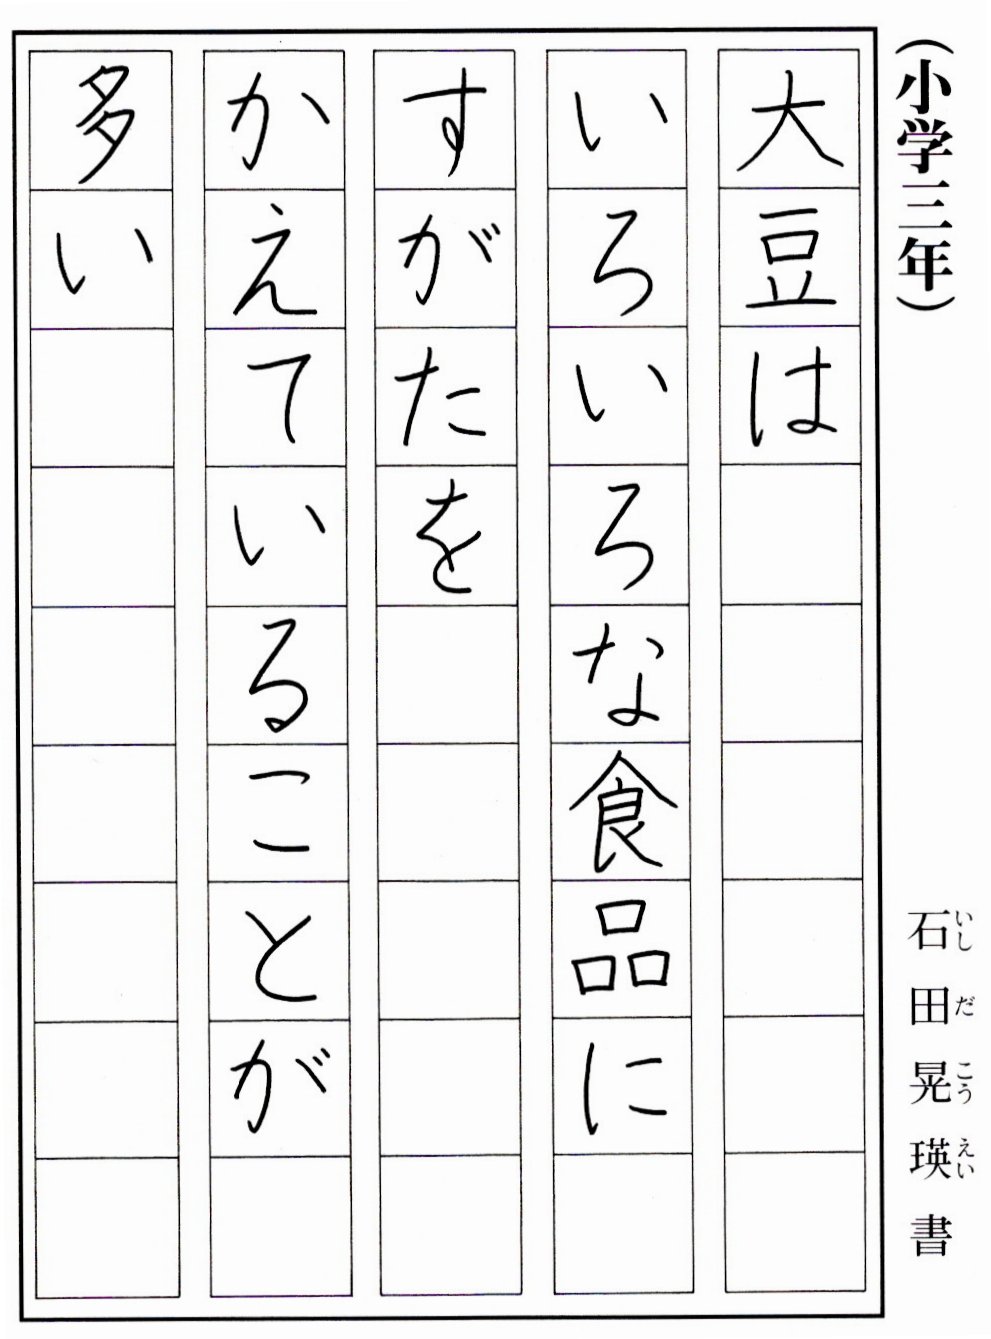 （小学三年）
石田晃瑛書
いしだこうえい
大豆は
いろいろな食品に
すがたを
かえていることが
多い